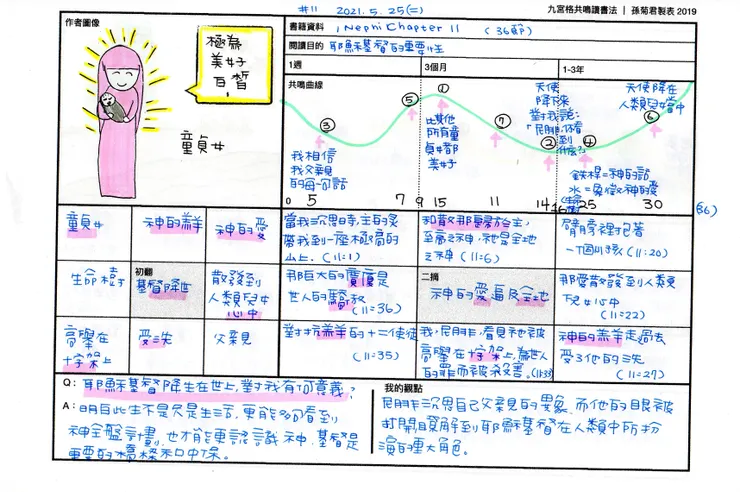 #11 2021.5.25(二)
九宮格共鳴讀書法｜孫菊君製表 2019
作者圖像
書籍資料
1 Nephi Chapter 11 (36節)
閱讀目的
耶穌基督的重要性
1週
3個月
1-3年
共鳴曲線
極為
美好
白皙
!
童貞女
③
我相信
我父親
的每一句話
⑤
①
比其他
所有童
貞女都
美好
⑦
天使
降下來
對我說:
「尼腓,你看
到
什麼?」
②
④
鐵桿=神的話
水=象徵神的愛
天使降在
人類兒女當中
⑥
0 5 7 9 15 11 14 16 25 30 (36)
童貞女
神的羔羊
神的愛
生命樹
初翻
基督降世
散發到
人類兒女
心中
高舉在
十字架上
受洗
父親
當我沉思時,主的靈
帶我到一座極高的
山上. (11:1)
和散那歸於主,
至高之神,祂是全地
之神 (11:6)
臂膀裡抱著
一個小孩 (11:20)
那巨大的廣廈是
世人的驕傲
(11:36)
二摘
神的愛遍及全地
那愛散發到人類
兒女心中
(11:22)
對抗羔羊的十二使徒
(11:35)
我,尼腓,看見祂被
高舉在十字架上,為世人
的罪而被殺害。(11:33)
神的羔羊走過去
受了他的洗
(11:27)
Q: 耶穌基督降生在世上,對我有何意義?
A: 明白此生不是只是生活,更能夠看到
神全盤計劃,也才能更認識神,基督是
重要的橋樑和中保。
我的觀點
尼腓沉思自己父親的異象,而他的眼被
打開,了解到耶穌基督在人類中所扮
演的重大角色。